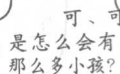 可、可
是怎么会有
那么多小孩?